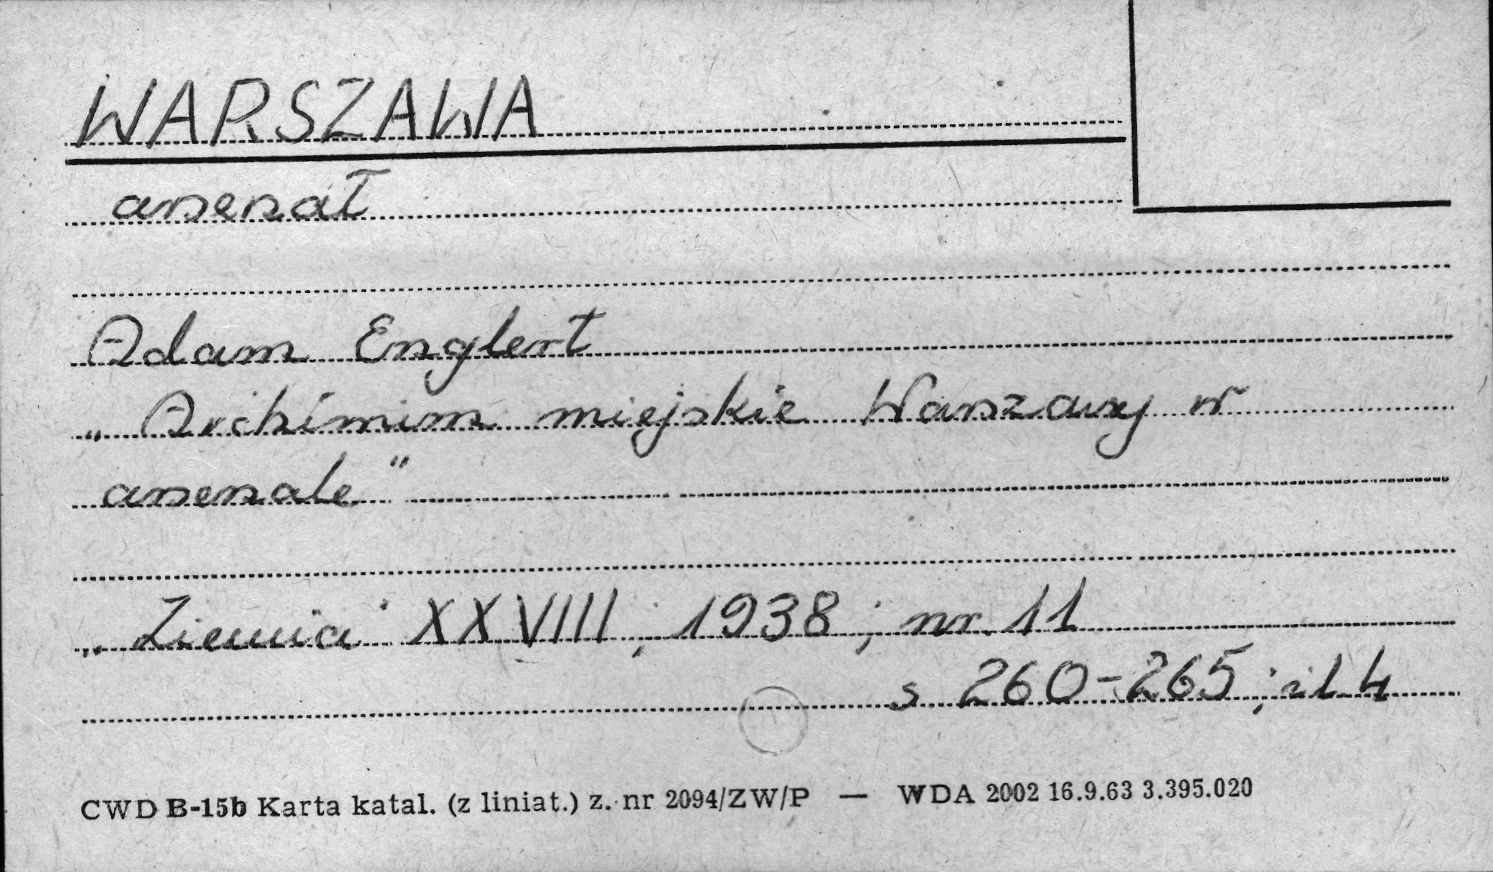 WARSZAWA
arsenał
Adam Englert
„Archiwum miejskie Warszawy w
arsenale"
„Ziemia" XXVIII; 1938; nr. 11
s 260-265; il 4
CWD B-15b Karta katal. (z liniat.) z. nr 2094/ZW/P — WDA 2002 16.9.63 3.395.020